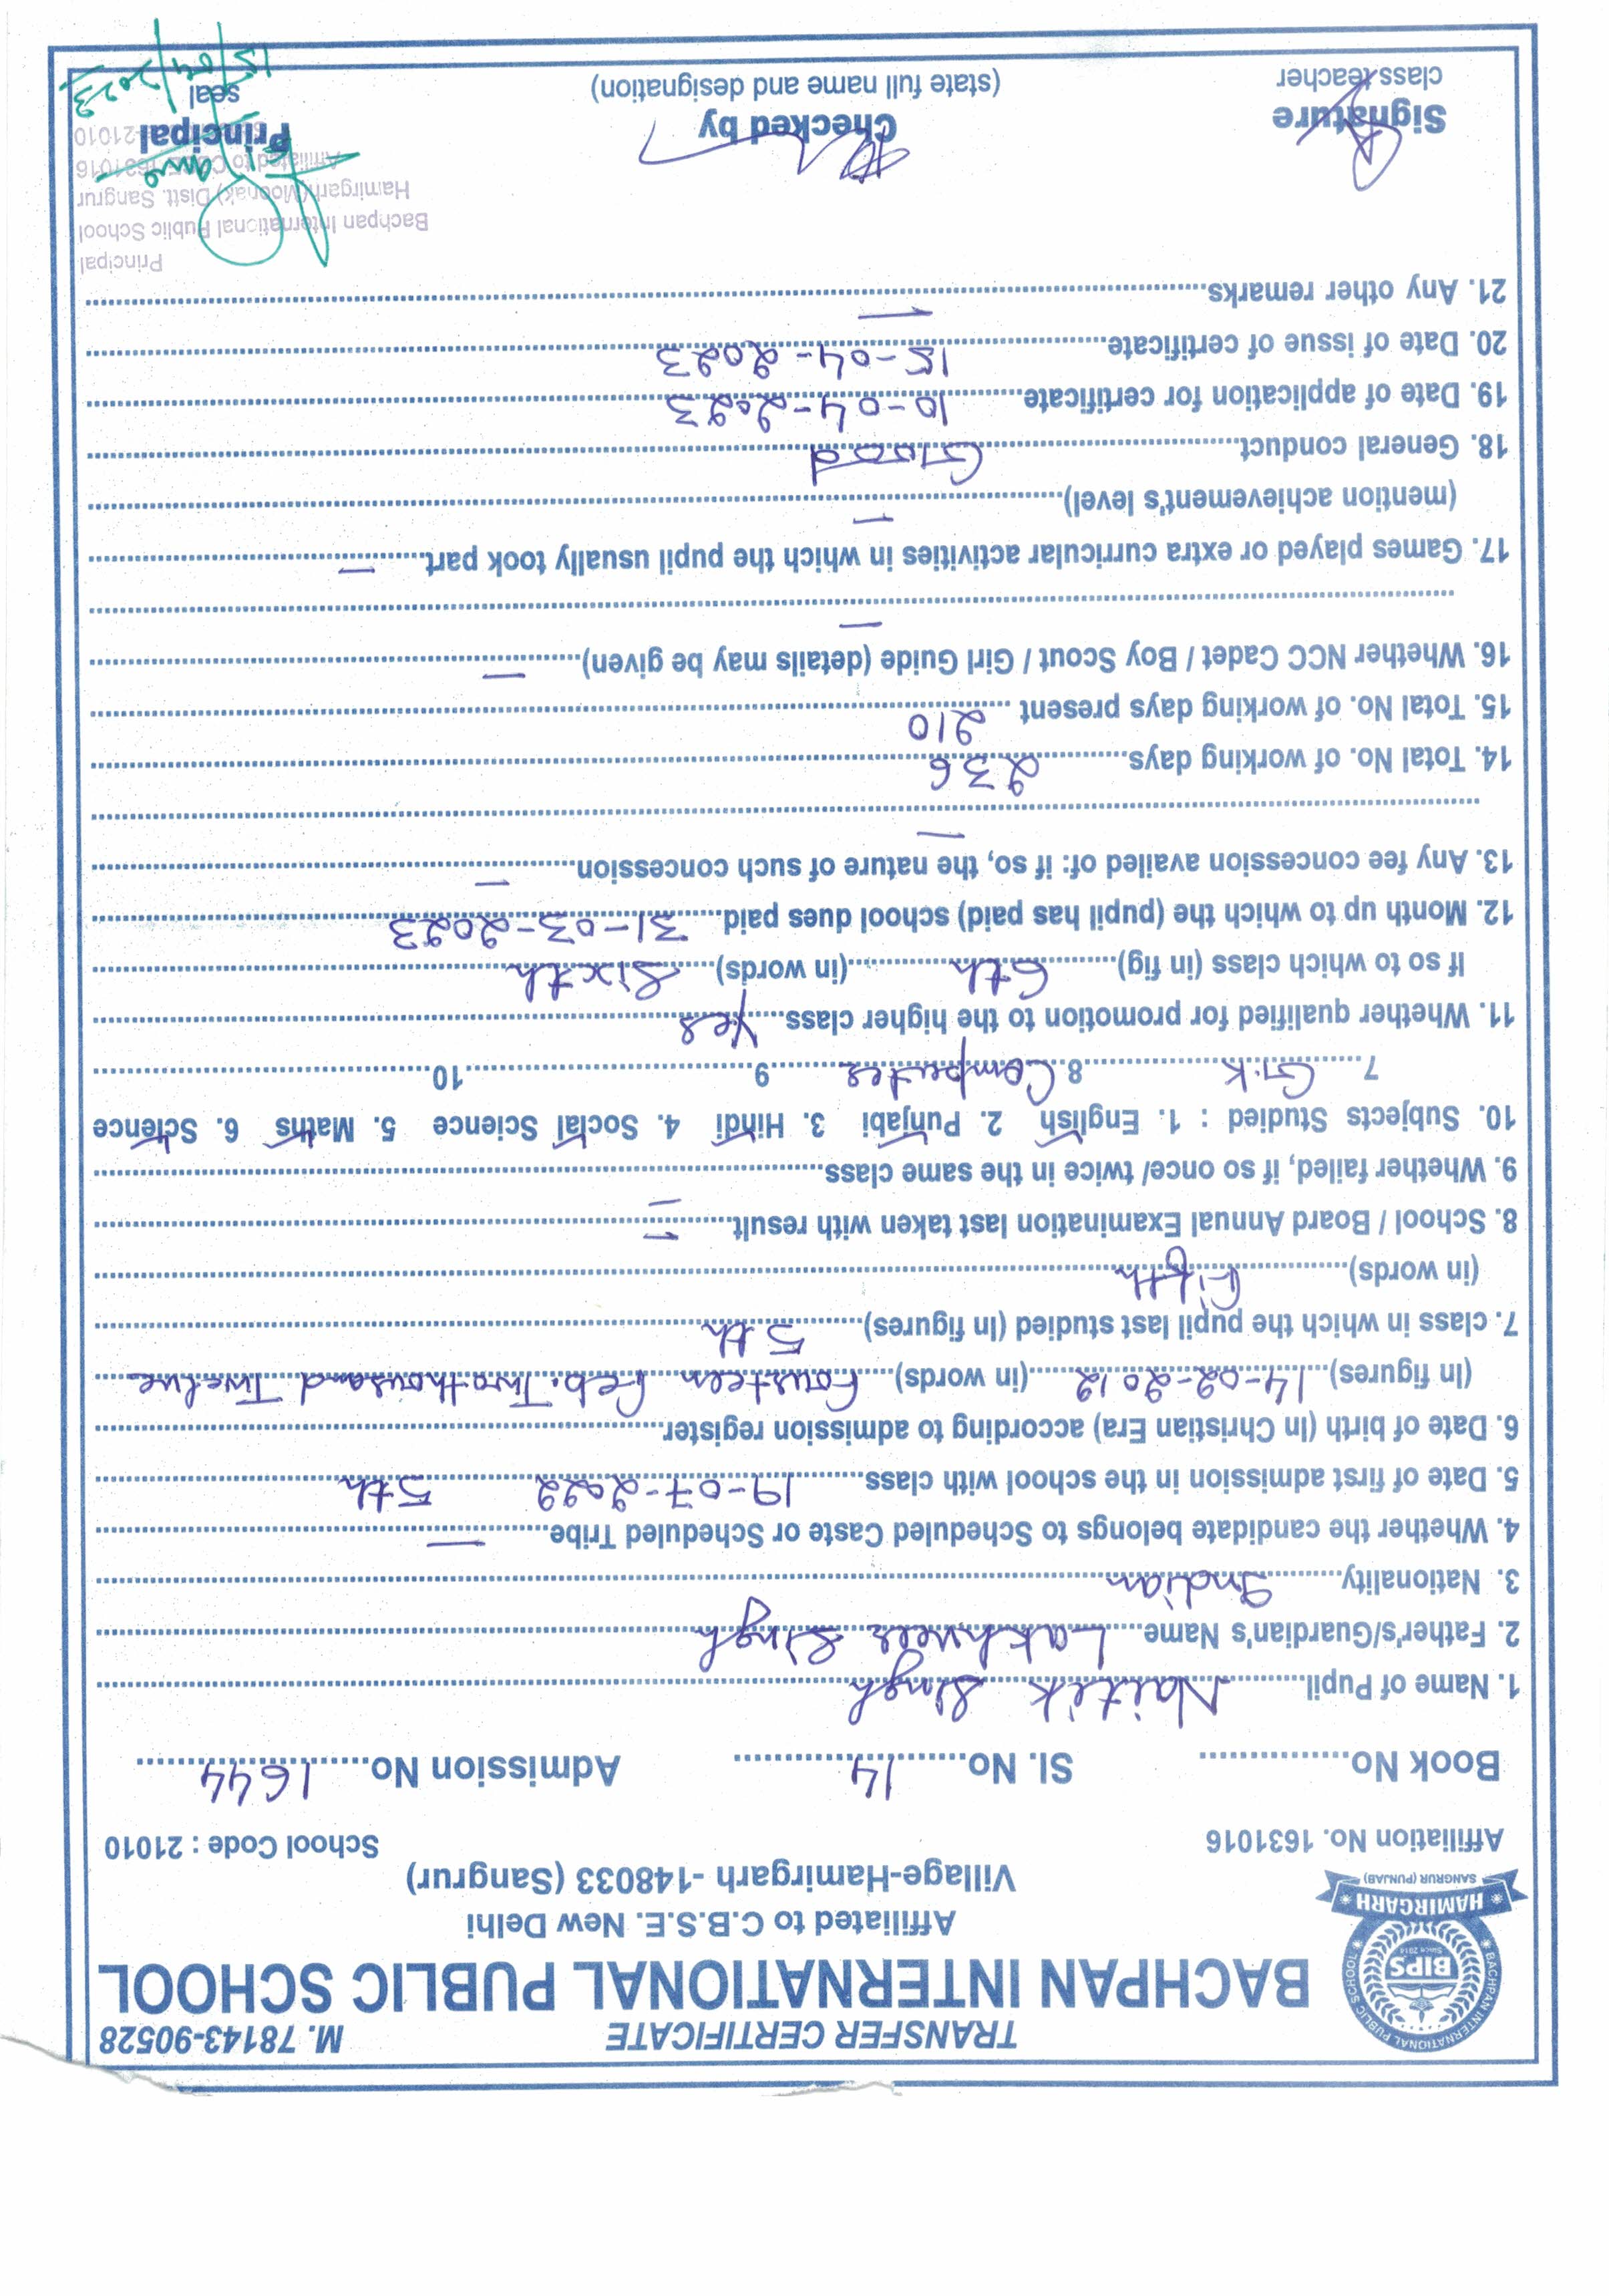 TRANSFER CERTIFICATE M. 78143-90528
BACHPAN INTERNATIONAL PUBLIC SCHOOL
Affiliated to C.B.S.E. New Delhi
Village-Hamirgarh -148033 (Sangrur)
BACHPAN INTERNATIONAL PUBLIC SCHOOL
BIPS
Since 2014
HAMIRGARH
SANGRUR (PUNJAB)
Affiliation No. 1631016 School Code : 21010
Book No............... Sl. No. 14 Admission No. 1644
1. Name of Pupil. Naitik Singh
2. Father's/Guardian's Name Lakhveer Singh
3. Nationality. Indian
4. Whether the candidate belongs to Scheduled Caste or Scheduled Tribe. —
5. Date of first admission in the school with class. 19-07-2022 5th
6. Date of birth (In Christian Era) according to admission register.
(In figures). 14-02-2012 (in words) Fourteen Feb. Two thousand Twelve
7. class in which the pupil last studied (In figures) 5th
(in words) Fifth
8. School / Board Annual Examination last taken with result. —
9. Whether failed, if so once/ twice in the same class. —
10. Subjects Studied : 1. English 2. Punjabi 3. Hindi 4. Social Science 5. Maths 6. Science
7. G.K 8. Computer 9 10
11. Whether qualified for promotion to the higher class. Yes
If so to which class (in fig) 6th (in words) Sixth
12. Month up to which the (pupil has paid) school dues paid. 31-03-2023
13. Any fee concession availed of: if so, the nature of such concession. —
—
14. Total No. of working days. 236
15. Total No. of working days present 210
16. Whether NCC Cadet / Boy Scout / Girl Guide (details may be given) —
—
17. Games played or extra curricular activities in which the pupil usually took part. —
(mention achievement's level) —
18. General conduct. Good
19. Date of application for certificate 10-04-2023
20. Date of issue of certificate. 15-04-2023
21. Any other remarks. —
Principal
Bachpan International Public School
Hamirgarh (Moonak) Distt. Sangrur
Affiliated to CBSE-1631016
21010
Signature Checked by Principal
class teacher (state full name and designation) seal
15/04/2023